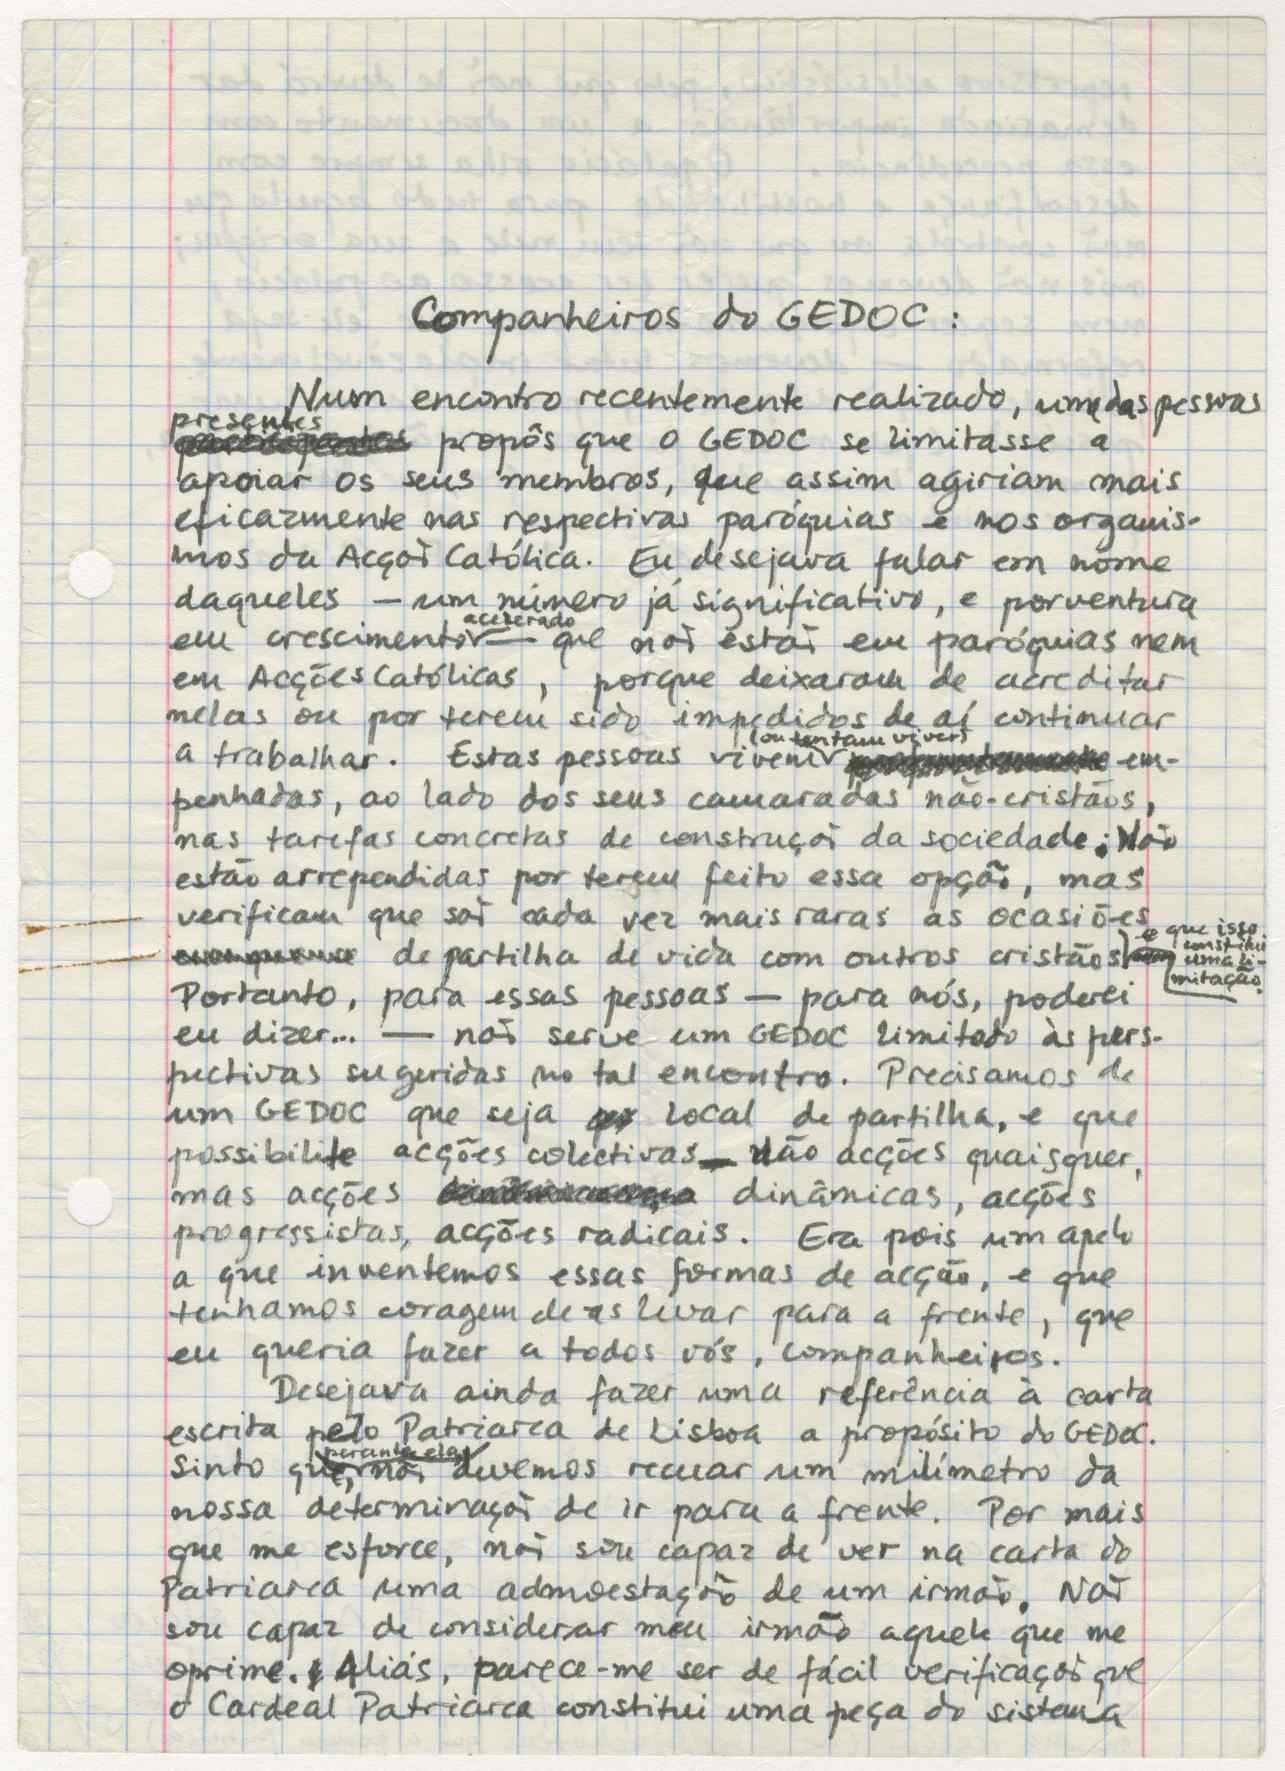 Companheiros do GEDOC :
Num encontro recentemente realizado, uma das pessoas
presentes propôs que o GEDOC se limitasse a
apoiar os seus membros, que assim agiriam mais
eficazmente nas respectivas paróquias e nos organis-
mos da Acção Católica. Eu desejava falar em nome
daqueles — um número já significativo, e porventura
em crescimento acelerado — que não estão em paróquias nem
em Acções Católicas, porque deixaram de acreditar
nelas ou por terem sido impedidos de aí continuar
a trabalhar. Estas pessoas vivem (ou tentam viver) em-
penhadas, ao lado dos seus camaradas não-cristãos,
nas tarefas concretas de construção da sociedade. Não
estão arrependidas por terem feito essa opção, mas
verificam que são cada vez mais raras as ocasiões
de partilha de vida com outros cristãos e que isso constitui uma li-mitação.
Portanto, para essas pessoas — para nós, poderei
eu dizer... — não serve um GEDOC limitado às pers-
pectivas sugeridas no tal encontro. Precisamos de
um GEDOC que seja local de partilha, e que
possibilite acções colectivas — não acções quaisquer,
mas acções dinâmicas, acções
progressistas, acções radicais. Era pois um apelo
a que inventemos essas formas de acção, e que
tenhamos coragem de as levar para a frente, que
eu queria fazer a todos vós, companheiros.
Desejava ainda fazer uma referência à carta
escrita pelo Patriarca de Lisboa a propósito do GEDOC.
Sinto que, perante ela, não devemos recuar um milímetro da
nossa determinação de ir para a frente. Por mais
que me esforce, não sou capaz de ver na carta do
Patriarca uma admoestação de um irmão. Não
sou capaz de considerar meu irmão aquele que me
oprime. Aliás, parece-me ser de fácil verificação que
o Cardeal Patriarca constitui uma peça do sistema